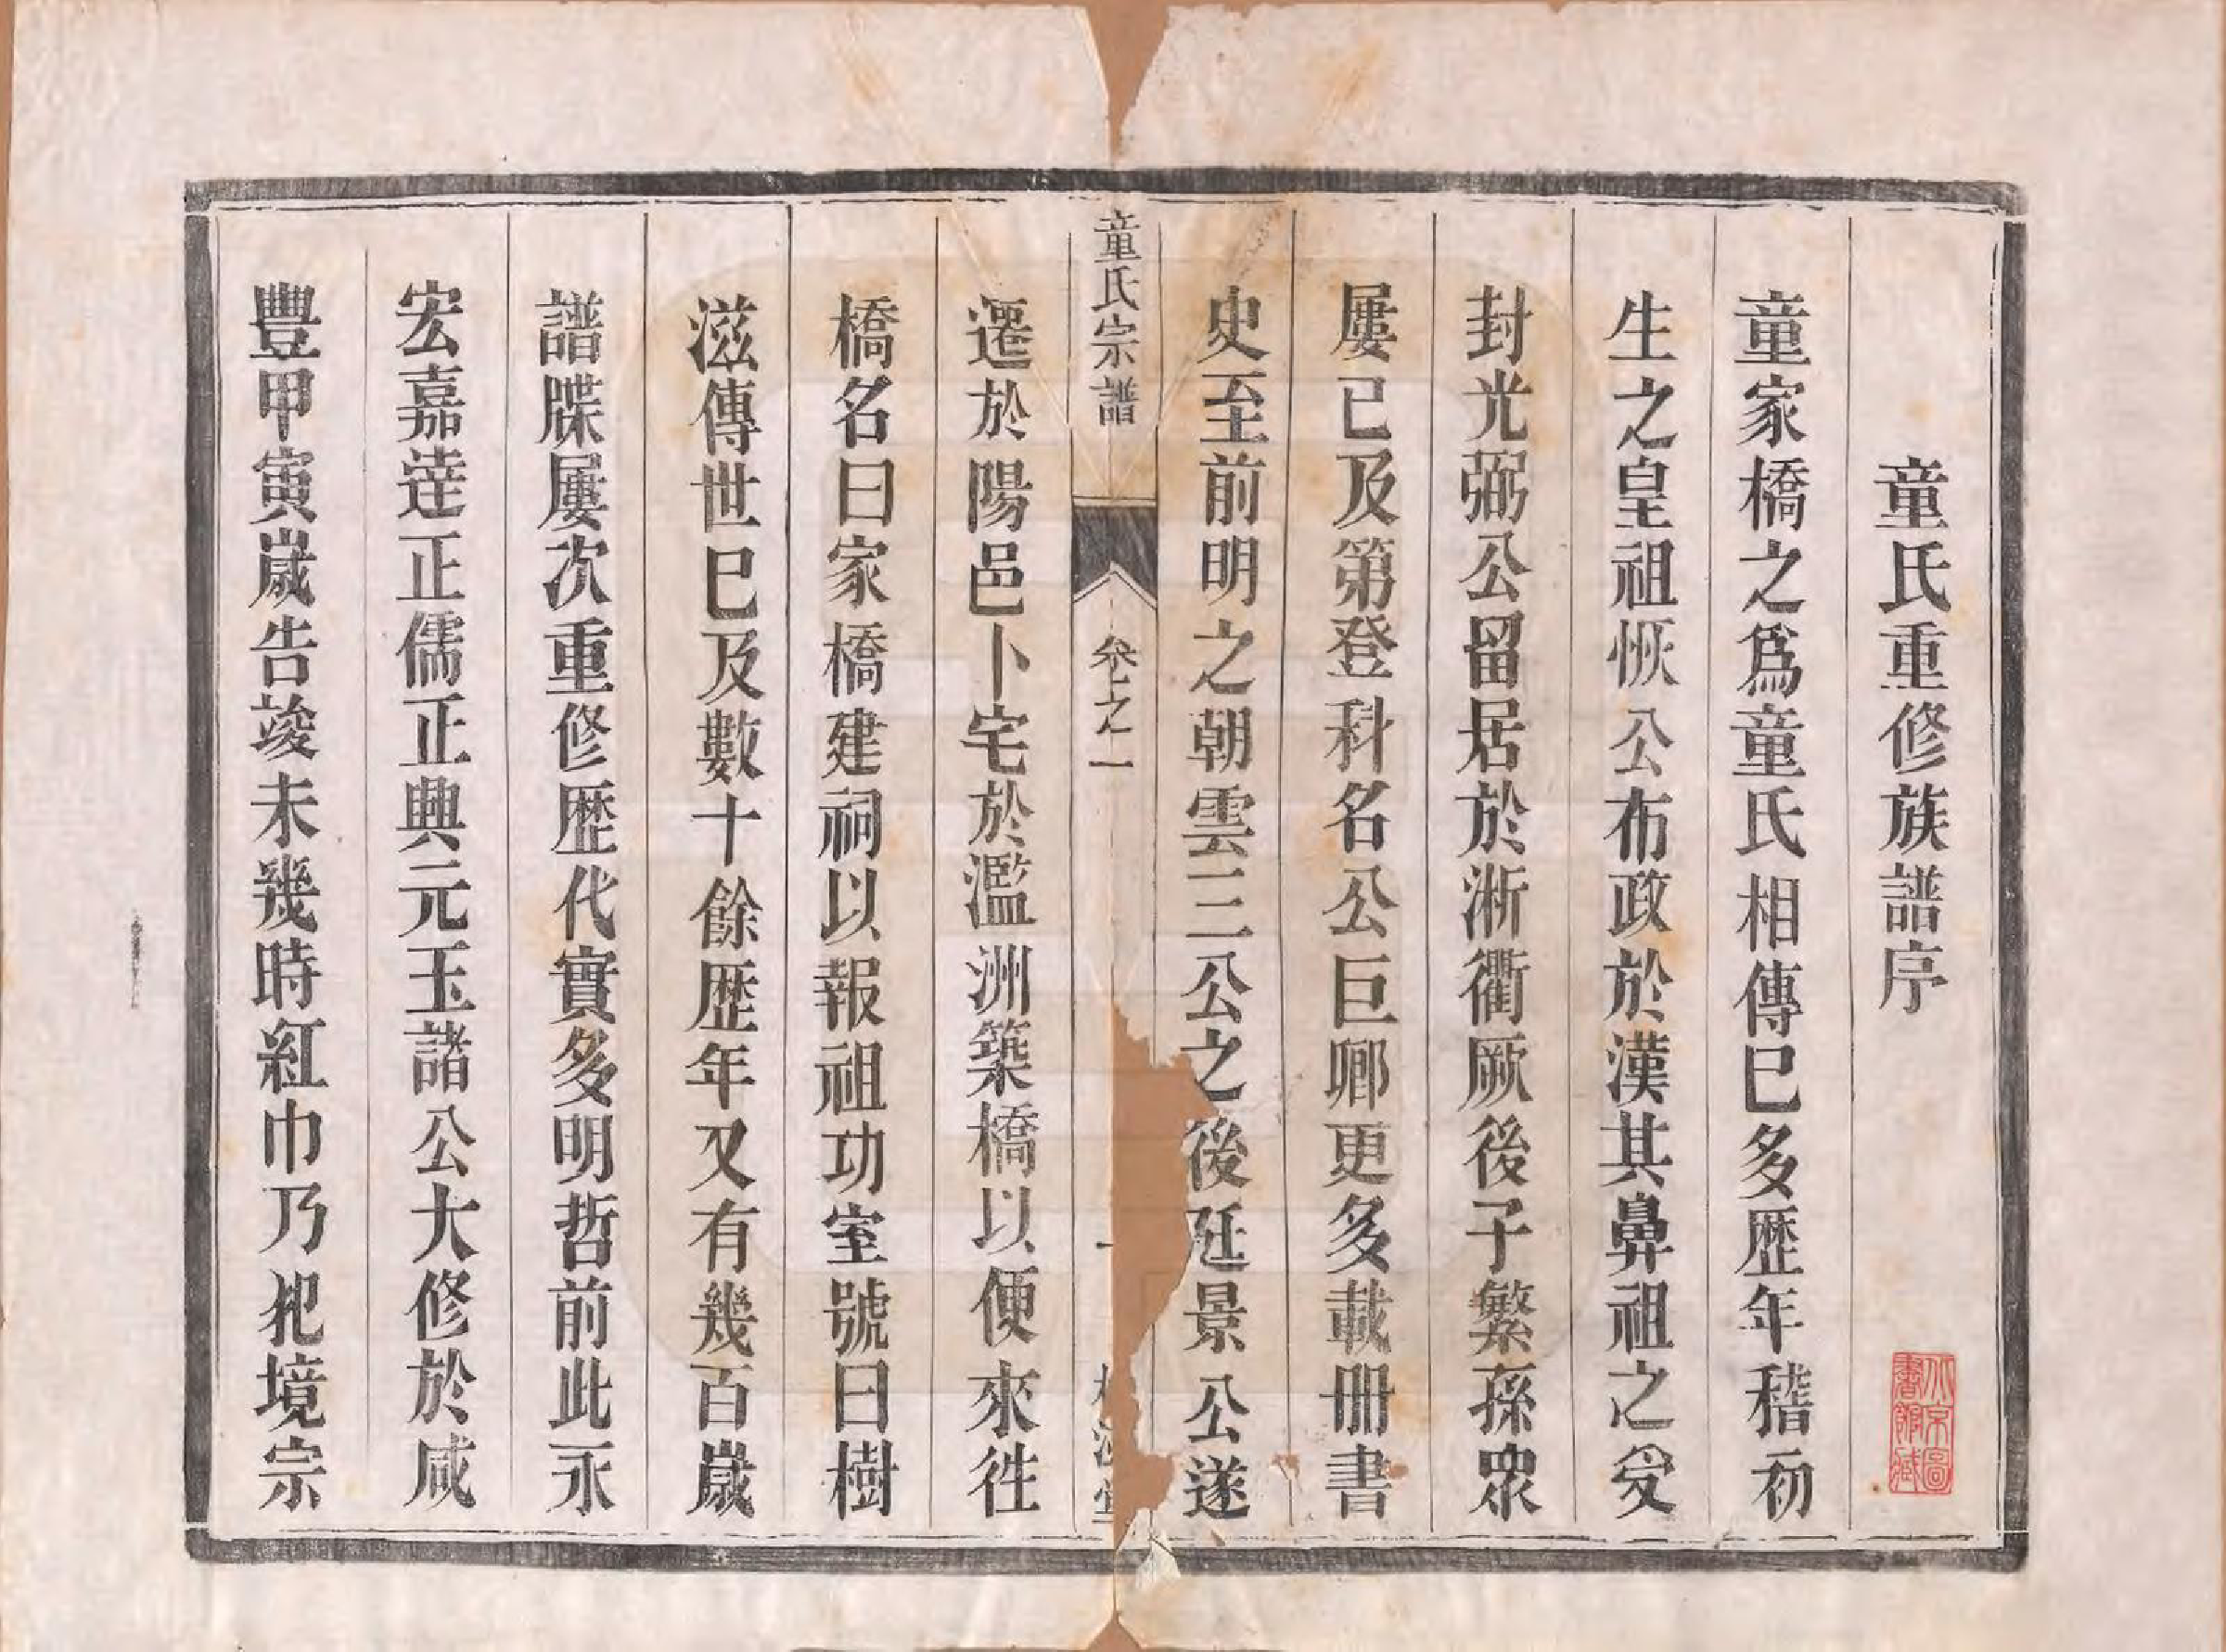 童氏重修族譜序
童家橋之爲童氏相傳已多歷年稽初
生之皇祖恢公布政於漢其鼻祖之受
封光弼公留居於淅衢厥後子繁孫眾
屢已及第登科名公巨卿更多載冊書
史至前明之朝雲三公之後廷景公遂
童氏宗譜
卷之一
一
遷於陽邑卜宅於濫洲築橋以便來徃
橋名曰家橋建祠以報祖功室號曰樹
滋傳世已及數十餘歷年又有幾百歲
譜牒屢次重修歷代實多明哲前此永
宏嘉逵正儒正典元玉諸公大修於咸
豐甲寅歲告竣未幾時紅巾乃犯境宗
北京圖書館藏